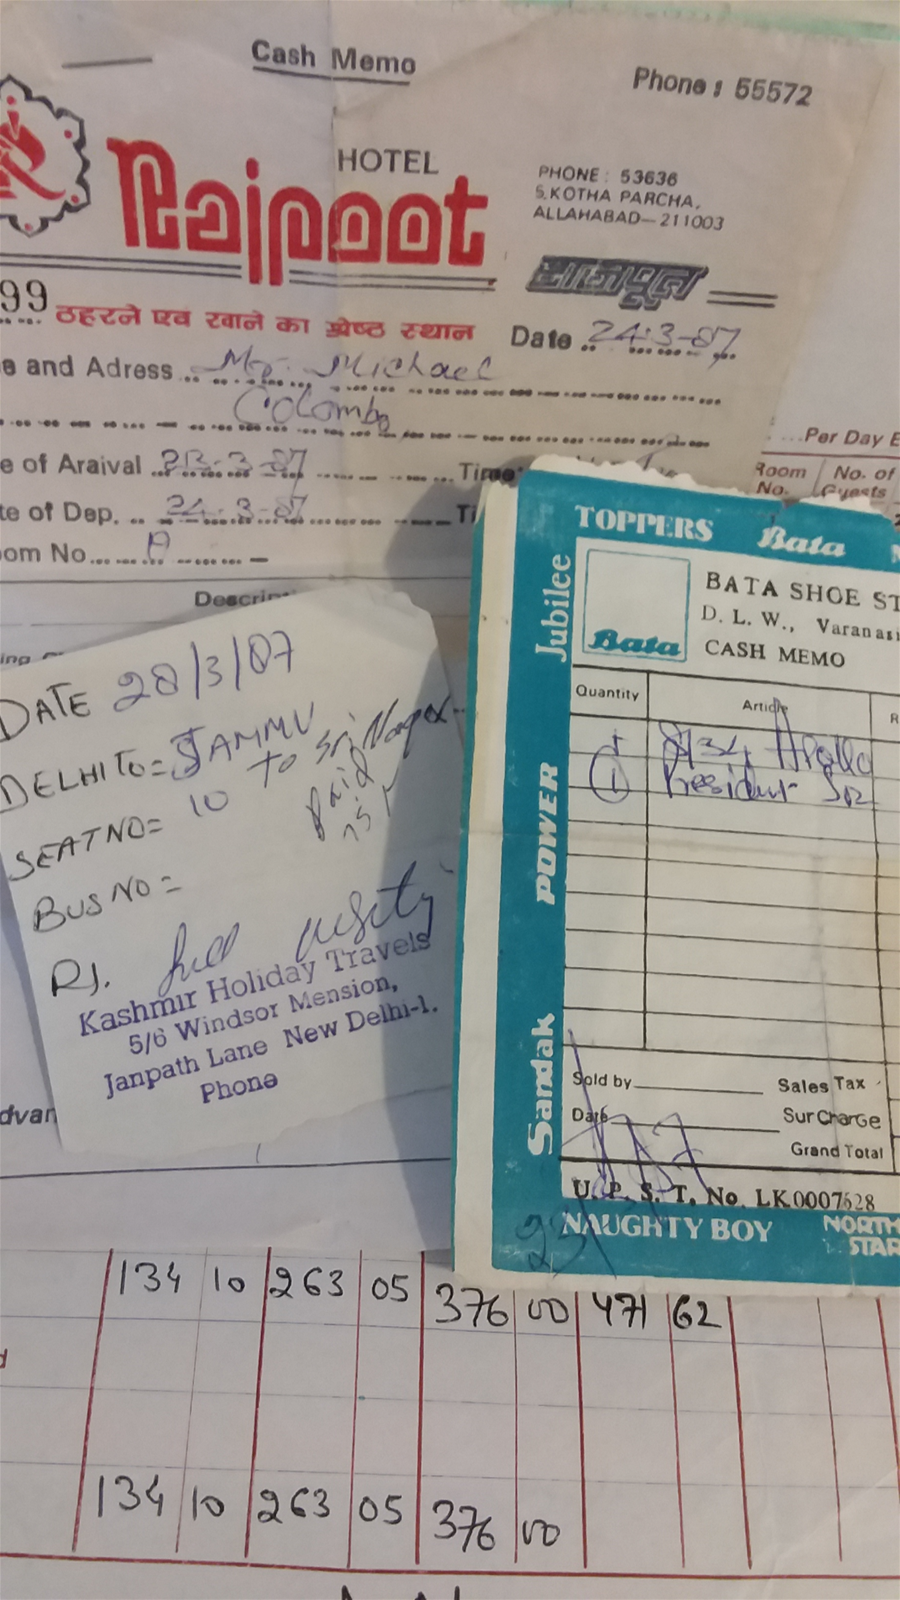 Cash Memo
Phone : 55572
HOTEL
Rajpoot
PHONE : 53636
5, KOTHA PARCHA,
ALLAHABAD—211003
राजपूत
99
ठहरने एव खाने का श्रेष्ठ स्थान
Date 24-3-87
e and Adress Mr. Michael
Colombo
e of Araival 23-3-87 Time:
te of Dep. 24-3-87 Ti
oom No A
Descrip
Per Day E
Room No.
No. of Guests
DATE 28/3/87
DELHI TO = JAMMU
SEAT NO = 10 To Sri Nagar
Paid
75
BUS NO =
full
Kashmir Holiday Travels
5/6 Windsor Mension,
Janpath Lane New Delhi-1.
Phone
dvan
TOPPERS Bata N
Jubilee
POWER
Sandak
Bata
BATA SHOE ST
D. L. W., Varanasi
CASH MEMO
Quantity Article R
8134 Apollo
1 President
Sold by Sales Tax
Date Sur Charge
Grand Total
U. P. S. T. No. LK0007628
NAUGHTY BOY NORTH STAR
134 10 263 05 376 00 471 62
134 10 263 05 376 00